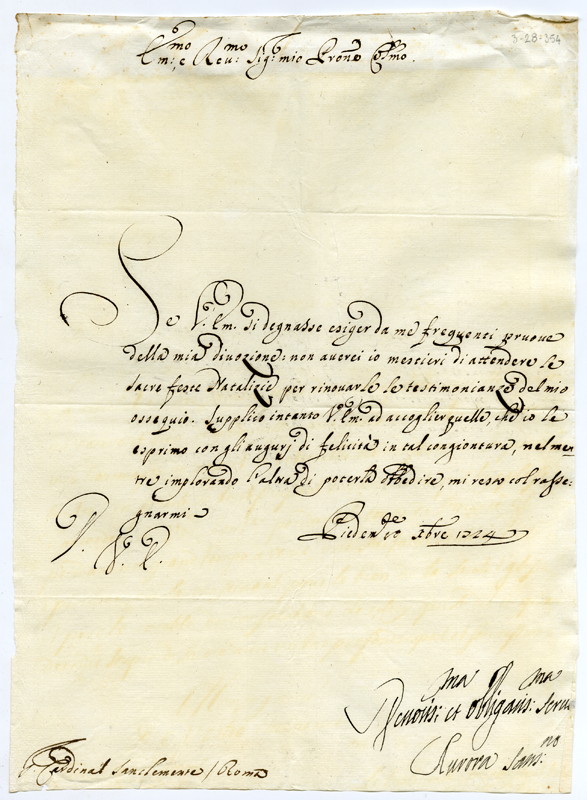 3-28=354
Em:mo e Reu:mo Sig:r mio Pron.e Col.mo
Se V. Em. si degnasse esiger da me frequenti pruove
della mia divozione: non auerei io mestieri di attendere le
sacre feste Natalizie per rinouarle le testimonianze del mio
ossequio. Supplico intanto V. Em. ad accoglier quelle, che io le
esprimo con gli augurj di felicità in tal congiontura, nel men=
tre implorando l'altra di poterla obbedire, mi resto col rasse:
gnarmi
D. V. E.
Xbre 1724
Deuotis:ma et Obligatis:ma Serua
Aurora Sans:no
Cardinal Sanclemente / Roma